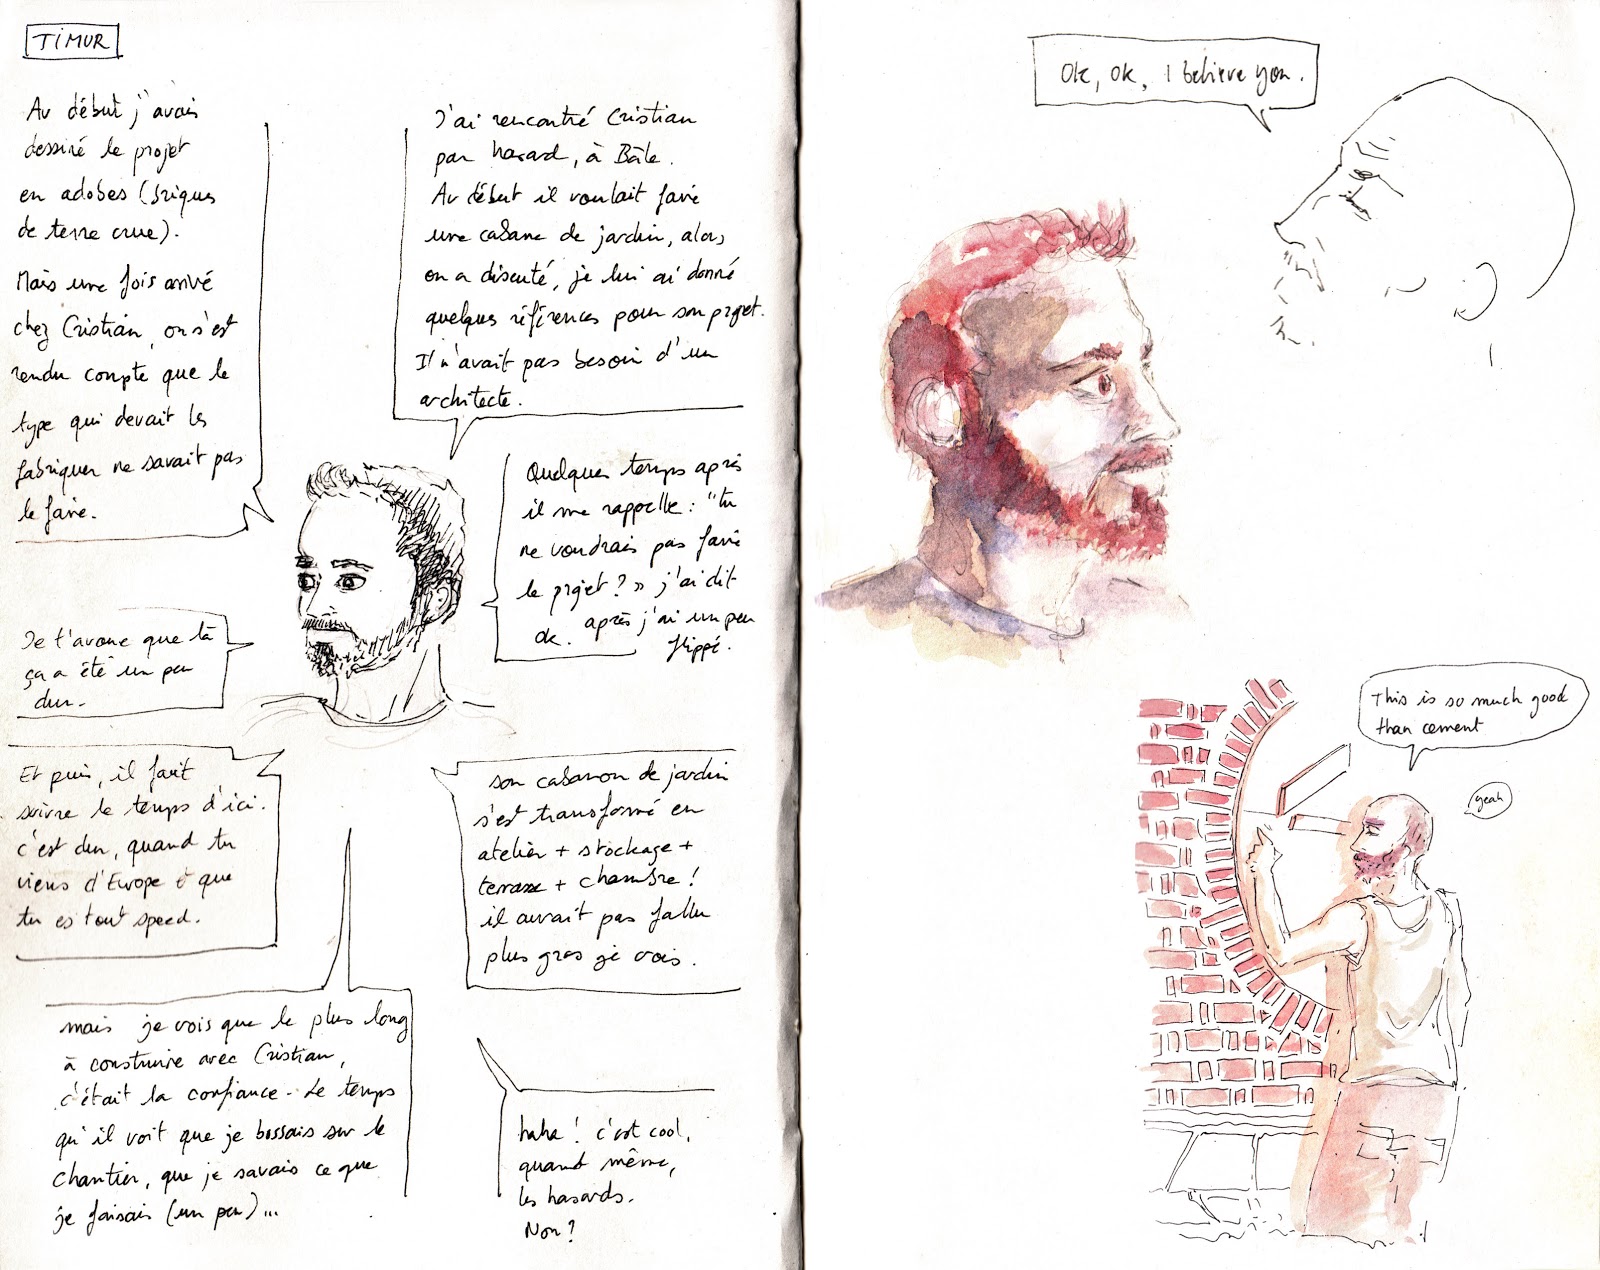 TIMUR
Au début j'avais
dessiné le projet
en adobes (briques
de terre crue).
Mais une fois arrivé
chez Cristian, on s'est
rendu compte que le
type qui devait les
fabriquer ne savait pas
le faire.
J'ai rencontré Cristian
par hasard, à Bâle.
Au début il voulait faire
une cabane de jardin, alors
on a discuté, je lui ai donné
quelques références pour son projet.
Il n'avait pas besoin d'un
architecte.
Quelques temps après
il me rappelle : "tu
ne voudrais pas faire
le projet ? » j'ai dit
ok. après j'ai un peu
flippé.
Je t'avoue que là
ça a été un peu
dur.
Et puis, il faut
suivre le temps d'ici.
c'est dur, quand tu
viens d'Europe è que
tu es tout speed.
son cabanon de jardin
s'est transformé en
atelier + stockage +
terrasse + chambre !
il aurait pas fallu
plus gros je crois.
mais je vois que le plus long
à construire avec Cristian,
c'était la confiance. Le temps
qu'il voit que je bossais sur le
chantier, que je savais ce que
je faisais (un peu)...
haha ! c'est cool,
quand même,
les hasards.
Non ?
Ok, ok, I believe you.
This is so much good
than cement
yeah